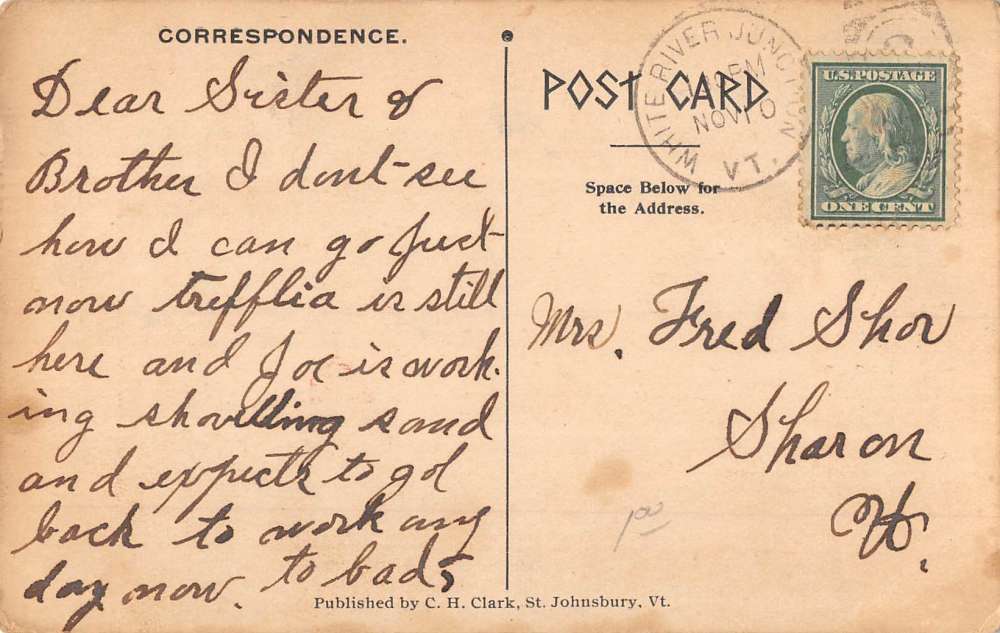 CORRESPONDENCE.
Dear Sister &
Brother I dont see
how I can go just
now trefflia is still
here and Joe is work-
ing shovelling sand
and expects to go
back to work any
day now. to bad
POST CARD
Space Below for
the Address.
WHITE RIVER JUNCTION
PM
NOV 10
VT.
U.S. POSTAGE
ONE CENT
Mrs. Fred Shor
Sharon
Vt.
Published by C. H. Clark, St. Johnsbury, Vt.